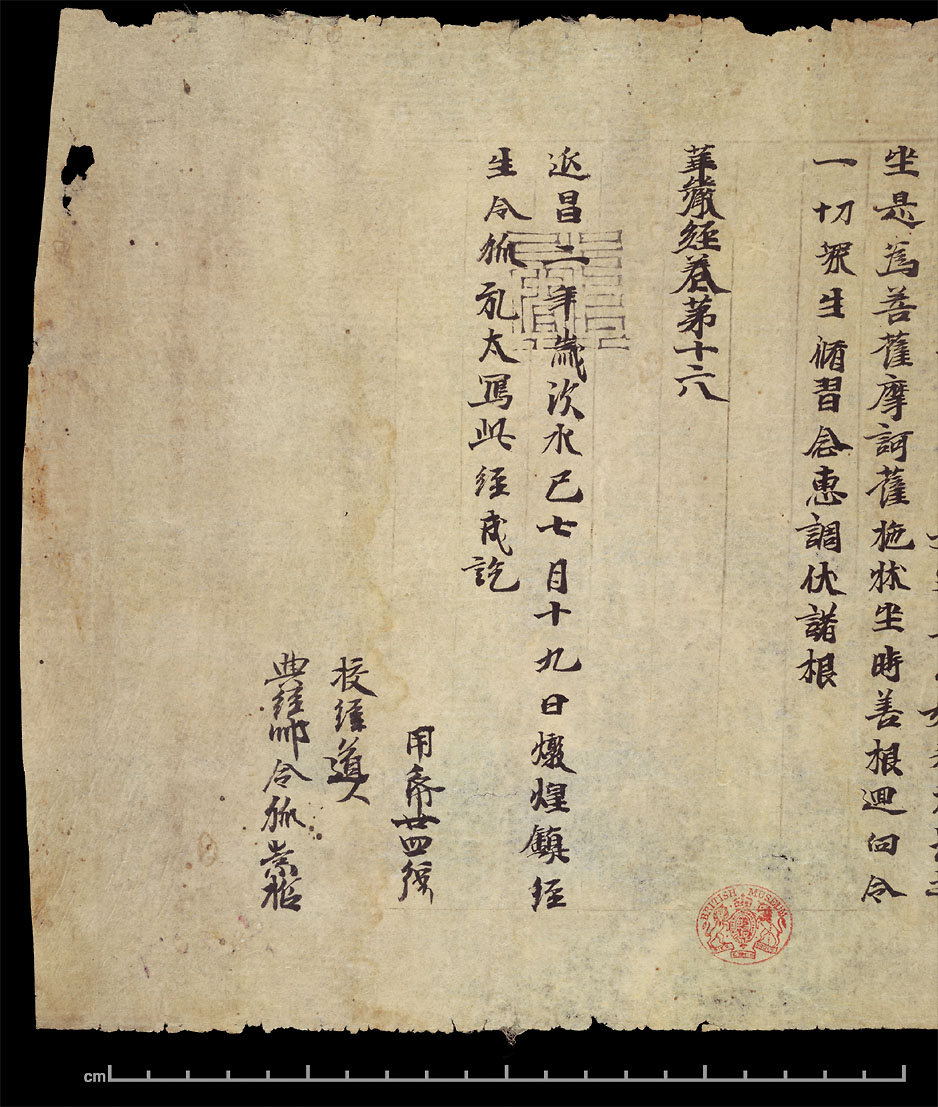 坐是為菩萨摩訶萨施牀坐時善根迴向令
一切衆生脩習念惠調伏諸根
華嚴經卷第十六
延昌二年歲次水巳七月十九日燉煌鎮經
生令狐礼太寫此經成訖
用帋廿四張
校經道人
典經帥令狐崇哲
BRITISH MUSEUM
cm